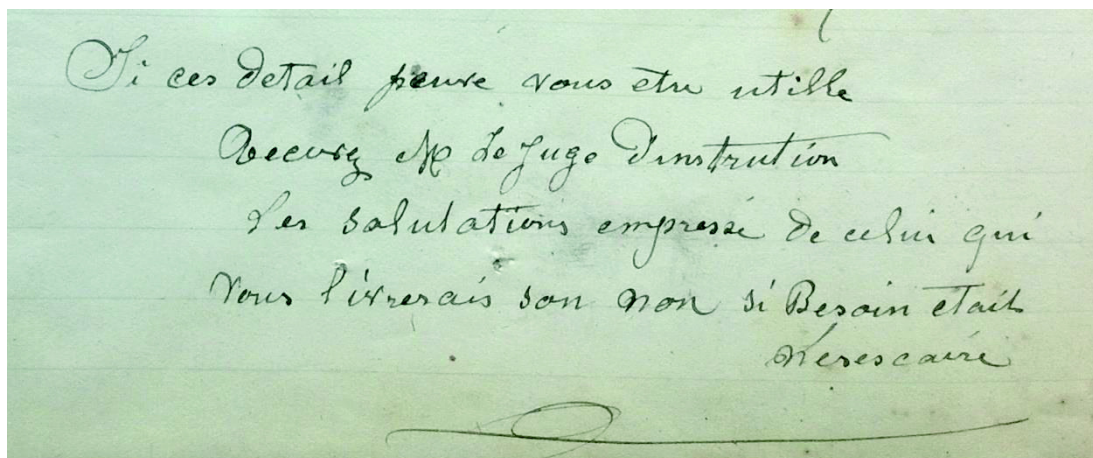 Si ces detail peuve vous etre utille
Recevez M Le Juge D'instrution
Les salutations empressé de celui qui
vous livrerais son non si Besoin etait
nesescaire